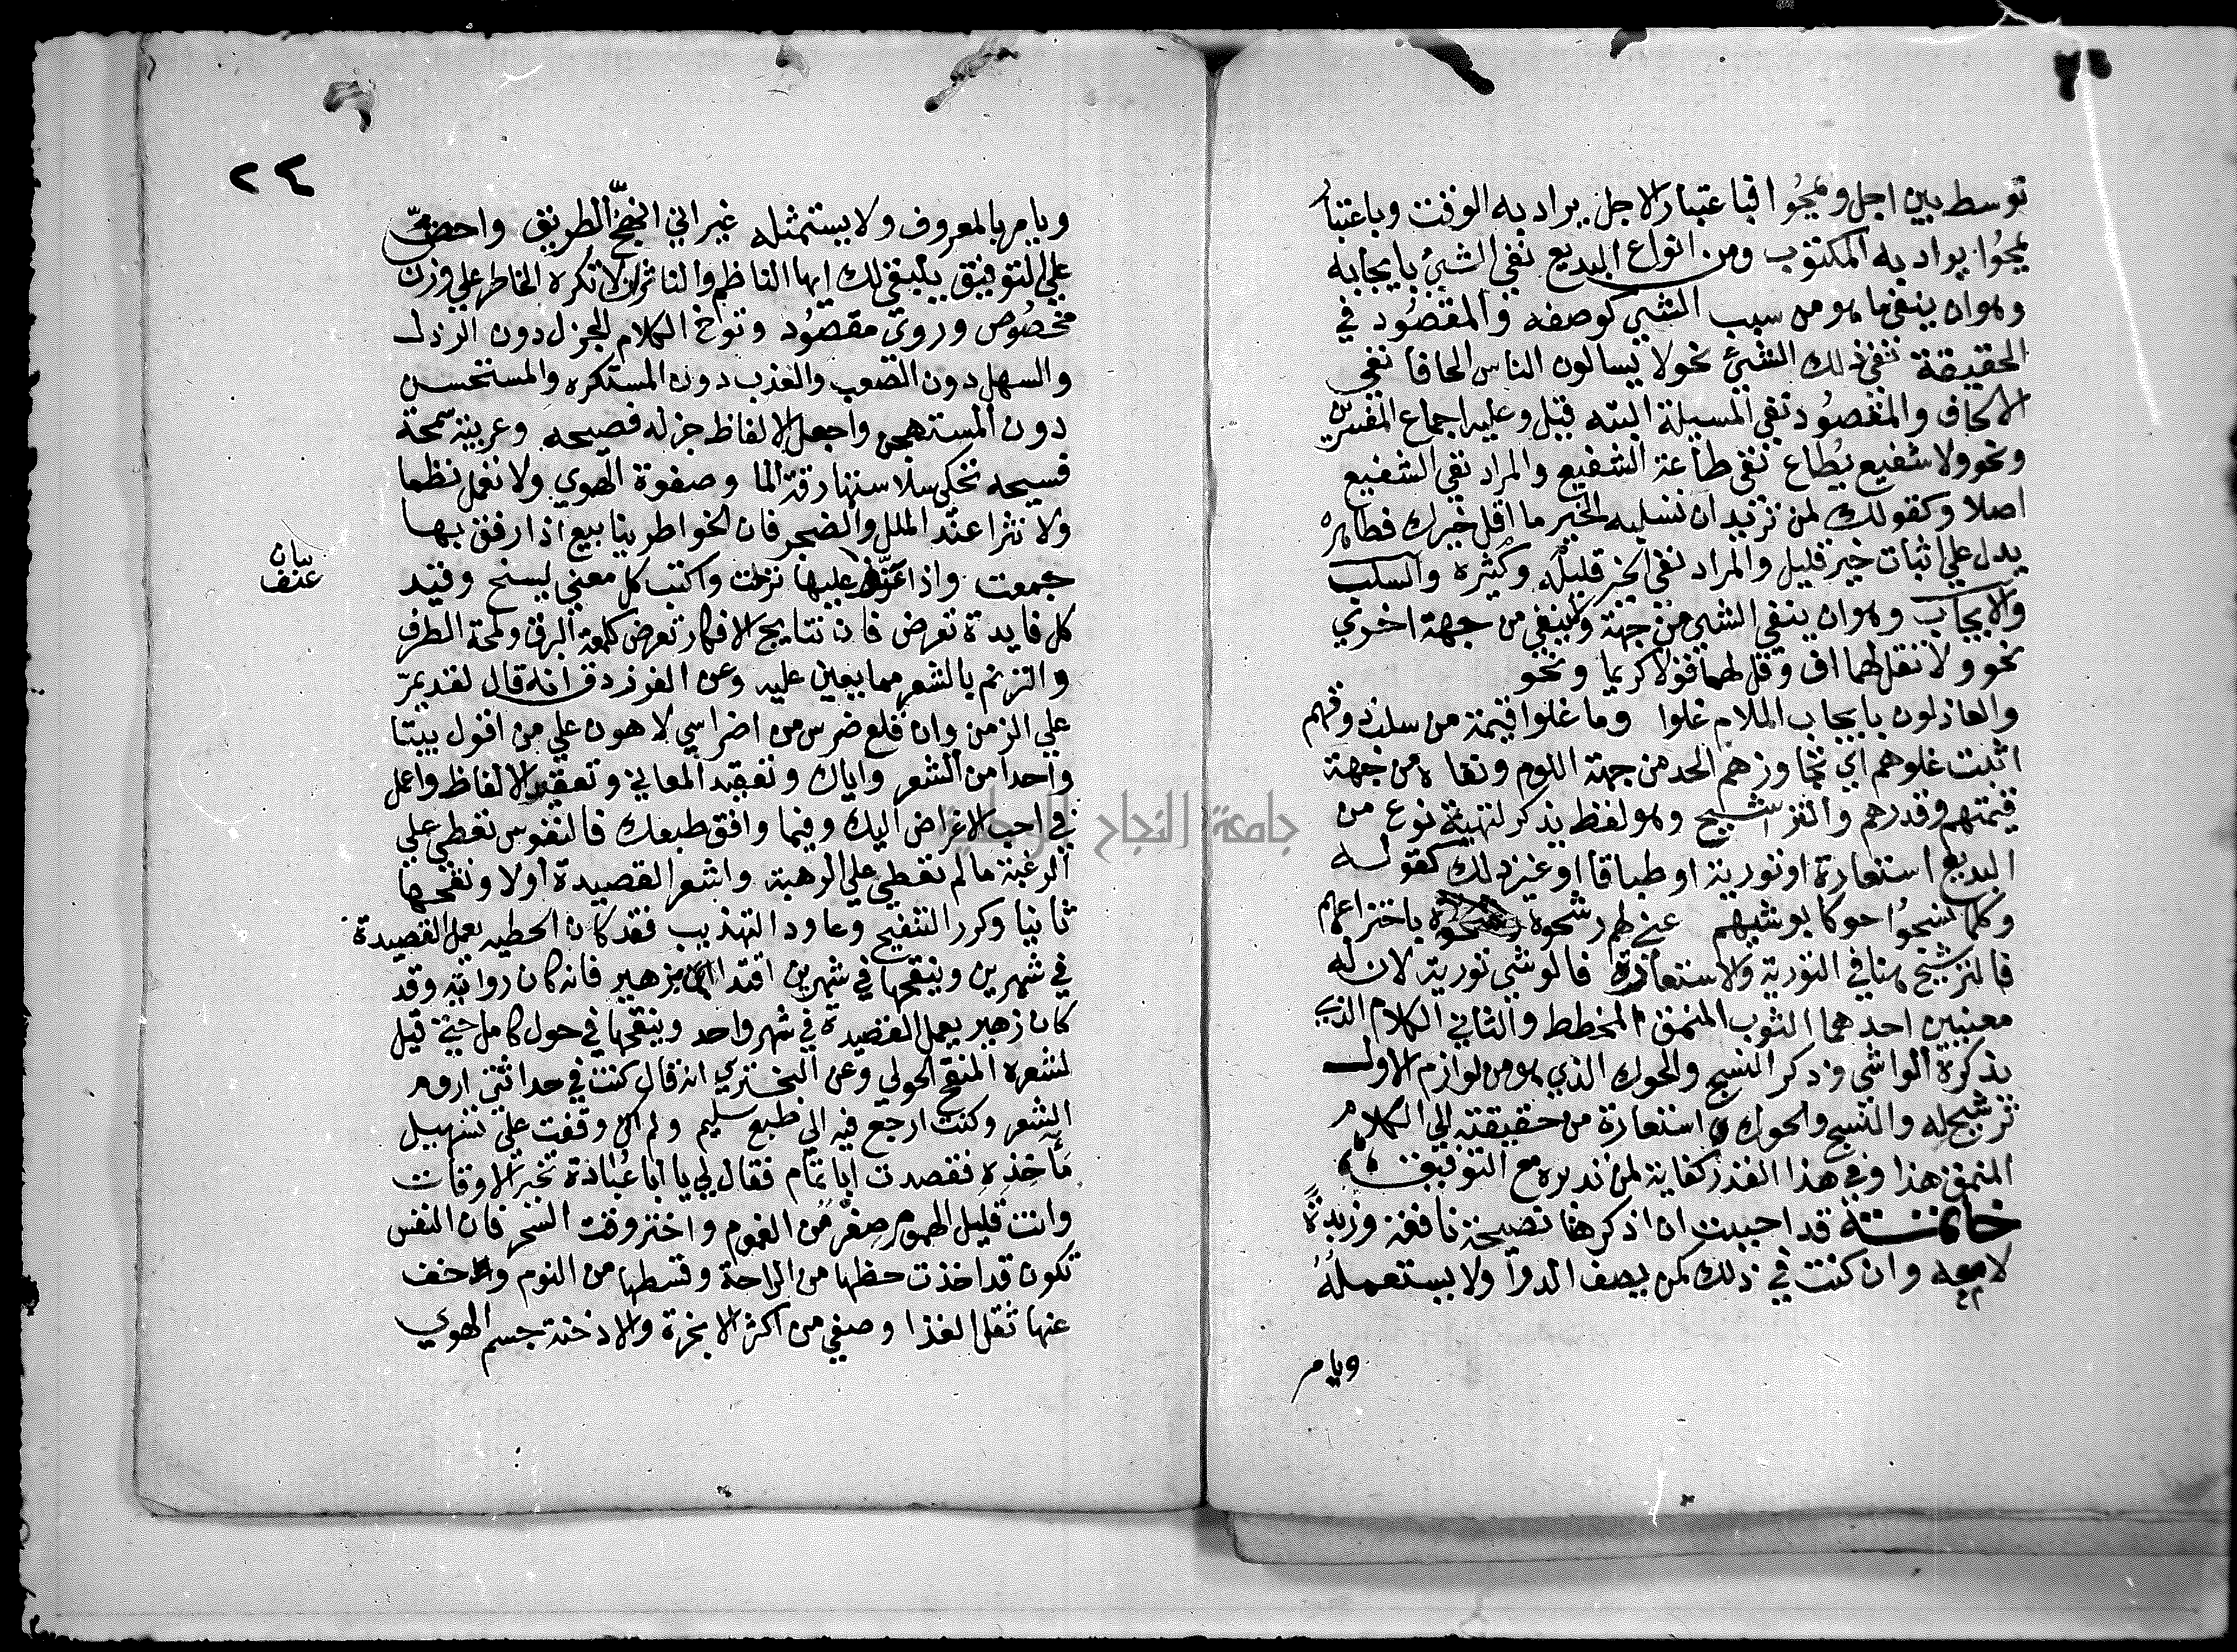 توسط بين اجل ويمحُوا فباعتبار الاجل يراد به الوقت وباعتبار
يمحُوا يراد به المكتوب ومن انواع البديع نفي الشئ بايجابه
وهو ان ينفي ما هو من سبب الشي كوصفه والمقصُود في
الحقيقة نفي ذلك الشئ نحو لا يسالون الناس الحافا نفي
الالحاف والمقصُود نفي المسيلة البتة قيل وعليه اجماع المفسرين
ونحو ولا شفيع يُطاع نفي طاعة الشفيع والمراد نفي الشفيع
اصلا وكقولك لمن تريد ان تسلبه الخير ما اقل خيرك فظاهره
يدل علي اثبات خير قليل والمراد نفي الخير قليله وكثيره والسلب
والايجاب وهو ان ينفي الشي من جهة ولا ينفي من جهة اخري
نحو ولا تقل لهما اف وقل لهما قولا كريما ونحو
والعاذلون بايجاب الملام غلوا وما غلوا قيمة من سلب ذوقهم
اثبت غلوهم اي تجاوزهم الحد من جهة اللوم ونفاه من جهة
قيمتهم وقدرهم والترشيح وهو لفظ يذكر لتهيئة نوع من
البديع استعارة او تورية او طباقا او غير ذلك كقوله
وكلما نسجُوا حوكا بوشيهم عني لهم رشحوه باختراعهم
فالترشيح هنا في التورية والاستعارة فالوشي تورية لان له
معنيين احدهما الثوب المنمق المخطط والثاني الكلام الذي
يذكره الواشي وذكر النسج والحوك الذي هو من لوازم الاول
ترشيح له والنسج والحوك استعارة من حقيقته الي الكلام
المنمق هذا وفي هذا القدر كفاية لمن تدبره مع التوفيق
خاتمة قد احببت ان اذكر هنا نصيحة نافعة وزبدةً
لامعه وان كنت في ذلك كمن يصف الدوا ولا يستعملهُ
ويامر
٢٤
ويامر بالمعروف ولا يستمثله غير اني انهج الطريق واحضّ
علي التوفيق ينبغي لك ايها الناظم والناثر ان لا تكره الخاطر علي وزن
مخصُوص وروي مقصُود وتواخ الكلام الجزل دون الرذل
والسهل دون الصعب والعذب دون المستكره والمستحسن
دون المستهجن واجعل الالفاظ جزله فصيحه وعربية سمحة
فسيحه تحكي سلاستها رقة الما وصفوة الهوي ولا تعمل نظما
ولا نثرا عند الملل والضجر فان الخواطر ينابيع اذا رفق بها
جمعت واذا عنّف عليها نزحت واكتب كل معني يسنح وقيّد
كل فايدة تعرض فان نتايج الافكار تعرض كلمعة البرق ولمحة الطرف
والترنم بالشعر مما يعين عليه وعن الفرزدق انه قال لقد يمرّ
علي الزمن وان قلع ضرس من اضراسي لاهون علي من اقول بيتا
واحدا من الشعر واياك وتعقيد المعاني وتعقيد الالفاظ واعمل
في احب الاغراض اليك وفيما وافق طبعك فالنفوس تعطي علي
الرغبة ما لم تعطي علي الرهبة واشعر القصيدة اولا ونقحها
ثانيا وكرر التنقيح وعاود التهذيب فقد كان الحطيه يعمل القصيدة
في شهرين وينقحها في شهرين اقتدا بزهير فانه كان روايته وقد
كان زهير يعمل القصيدة في شهر واحد وينقحها في حول كامل حتي قيل
لشعره المنقح الحولي وعن البختري انه قال كنت في حداثتي اروم
الشعر وكنت ارجع فيه الي طبع سليم ولم اكن وقفت علي تسهيل
مأخذه فقصدت ابا تمام فقال لي يا ابا عُبادة تخير الاوقات
وانت قليل الهموم صِفرٌ من الغموم واختر وقت السحر فان النفس
تكون قد اخذت حظها من الراحة وقسطها من النوم وخف
عنها ثقل الغذا وصفي من اكثر الابخرة والادخنة جسم الهوي
بيان
عنف
جامعة النجاح الوطنية